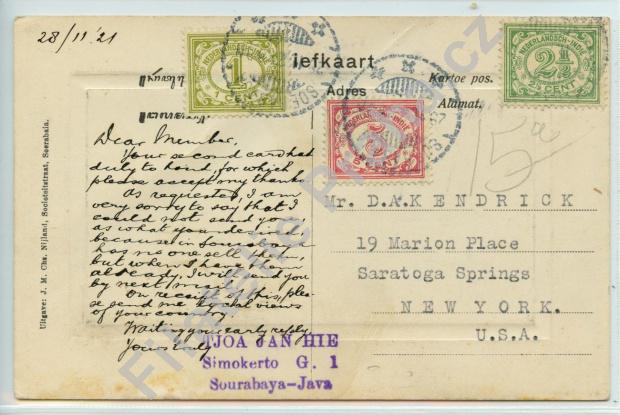 28/11 '21
Briefkaart
Adres
Kartoe pos.
Alamat.
NEDERLANDSCH-INDIË
1
CENT
NEDERLANDSCH-INDIË
2½
CENT
NEDERLANDSCH-INDIË
5
CENT
15
Dear Member,
Your second card had
duly to hand, for which
please accept my thanks
as requested, I am
very sorry to say that I
could not send you,
as what you desire
because in Sourabaya
has no one sell them,
but when I have them
already, I will send you
by next mail.
On receipt of this, plea-
se send me local views
of your country.
Waiting your early reply
Yours truly
TJOA JAN HIE
Simokerto G. 1
Sourabaya-Java
Mr. D.A.KENDRICK
19 Marion Place
Saratoga Springs
NEW YORK.
U.S.A.
Uitgave: J. M. Chs. Nijland, Societeitstraat, Soerabaia.